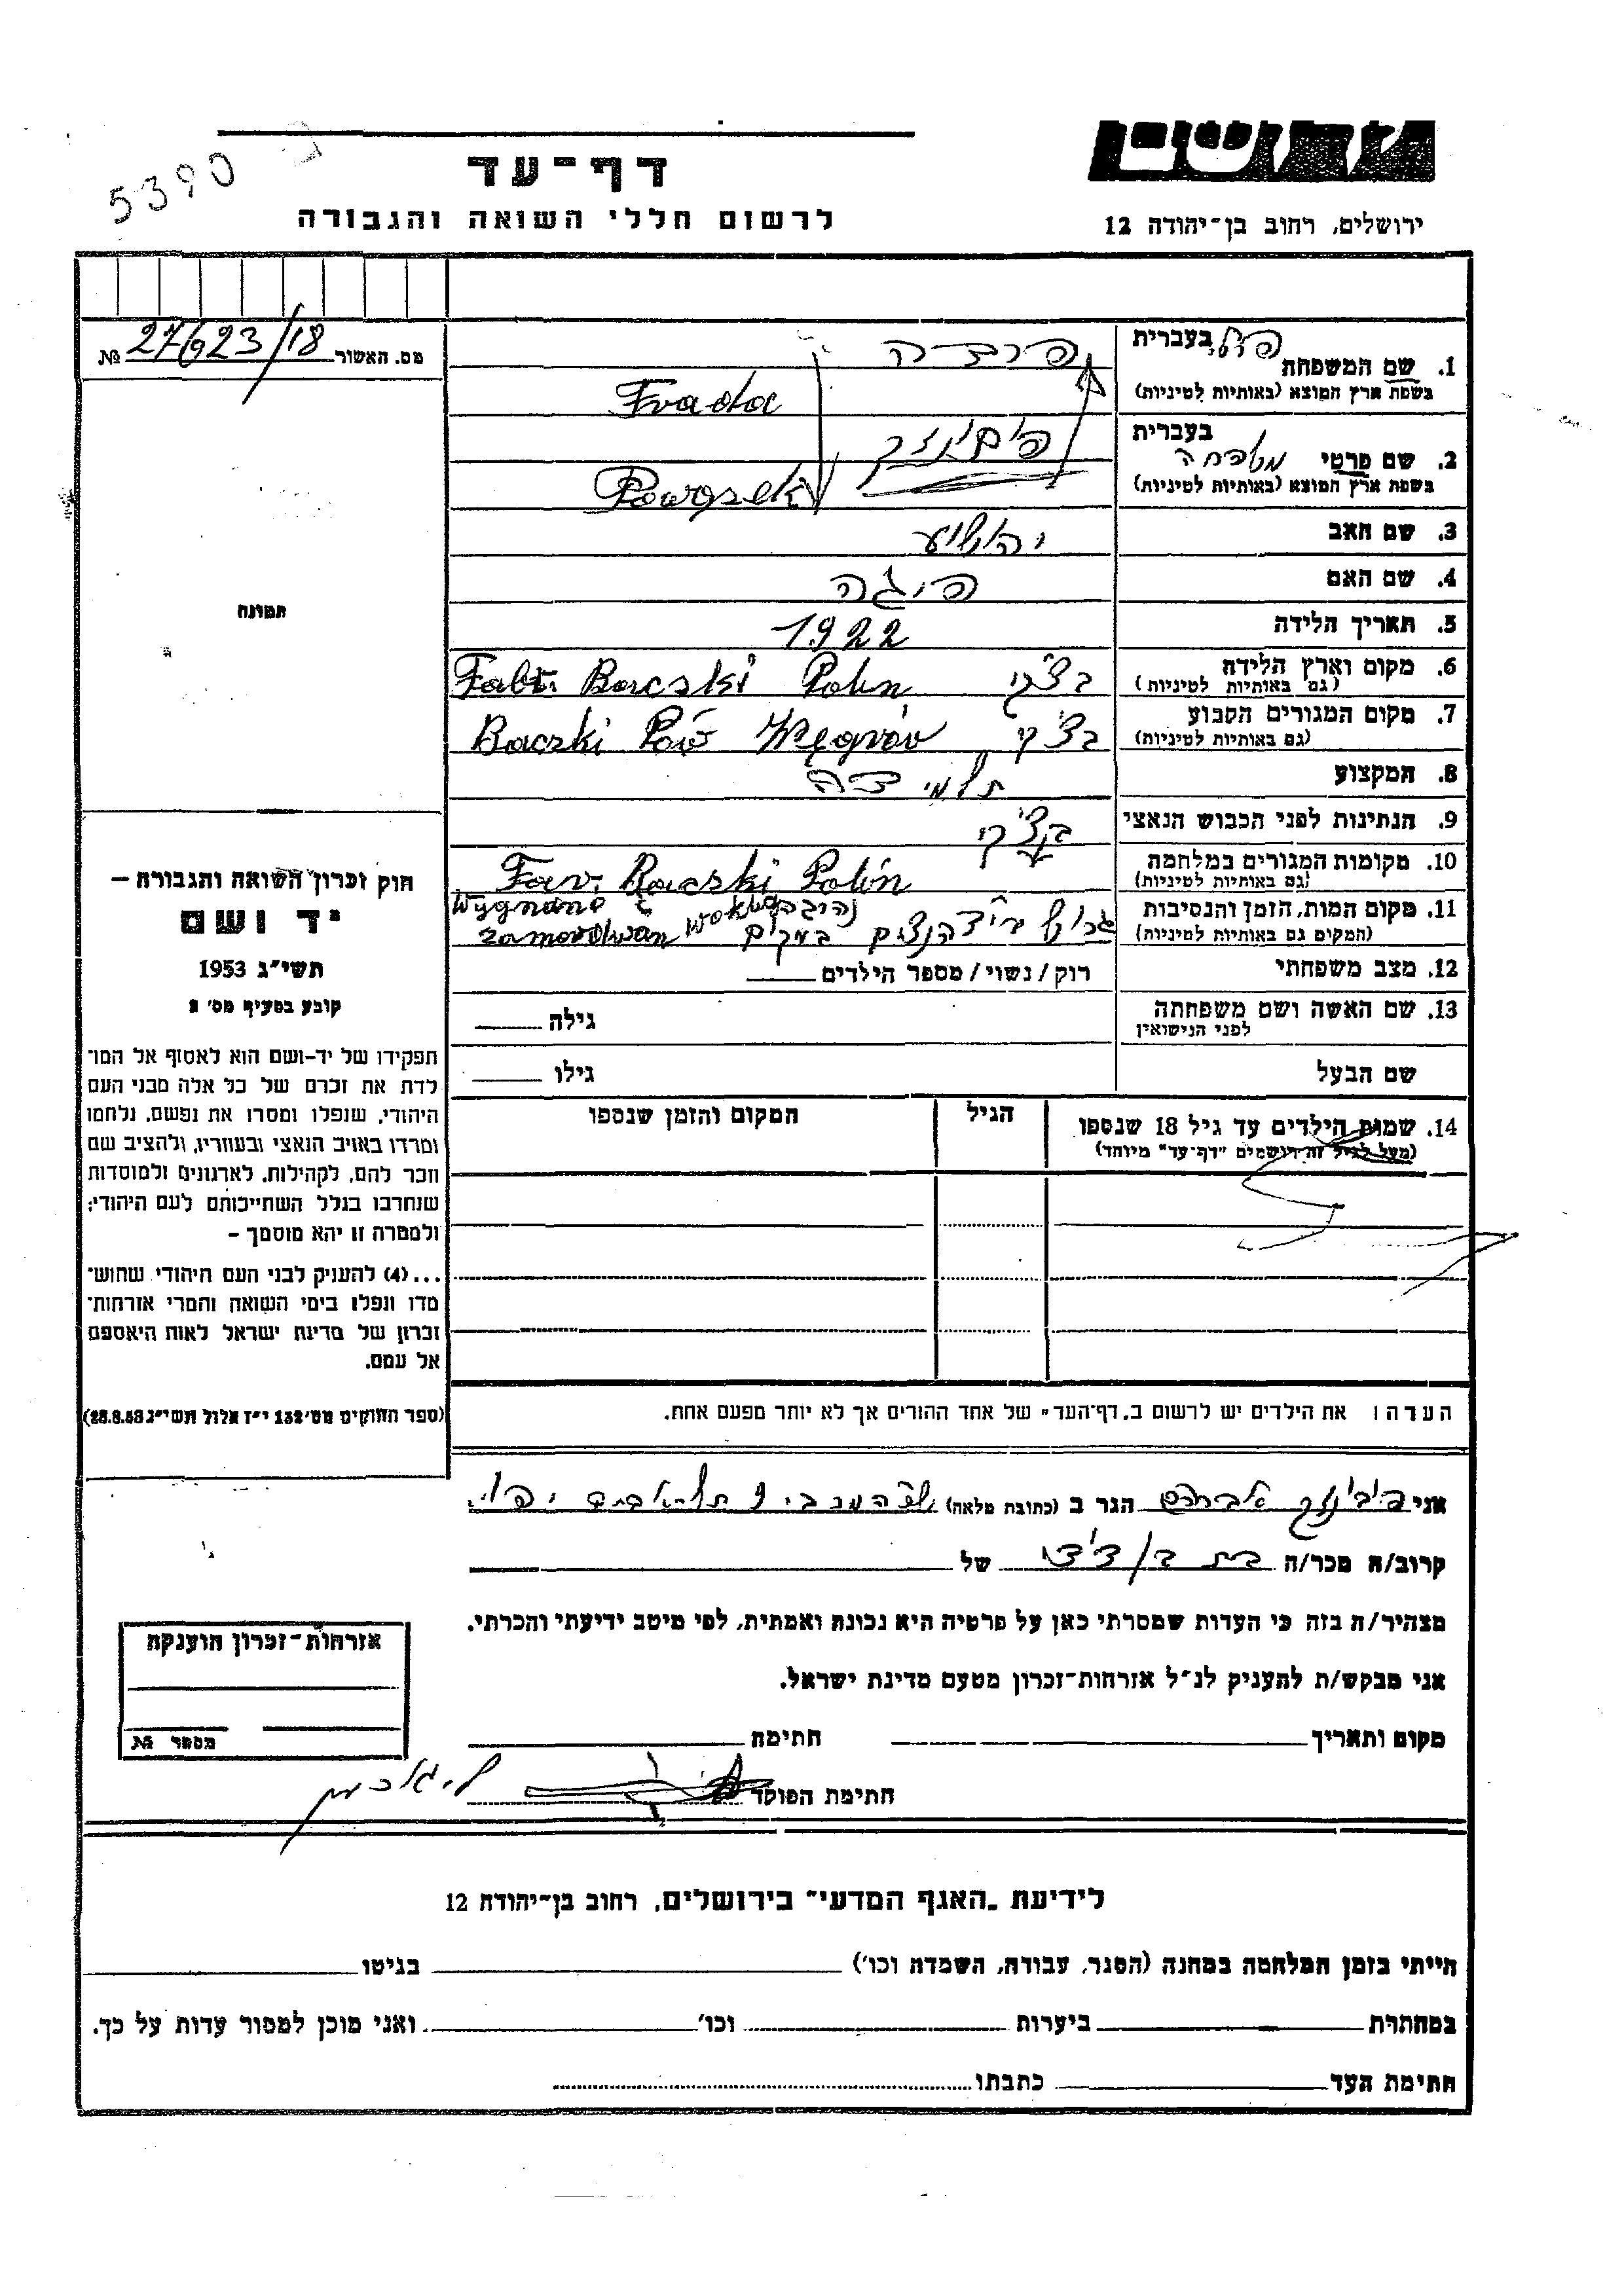 5390
דף-עד
לרשום חללי השואה והגבורה
יד ושם
ירושלים, רחוב בן-יהודה 12
מס. האשור 27623/18 №
תמונה
חוק זכרון השואה והגבורה –
יד ושם
תשי״ג 1953
קובע בסעיף מס׳ 2
תפקידו של יד-ושם הוא לאסוף אל המו־
לדת את זכרם של כל אלה מבני העם
היהודי, שנפלו ומסרו את נפשם, נלחמו
ומרדו באויב הנאצי ובעוזריו, ולהציב שם
וזכר להם, לקהילות, לארגונים ולמוסדות
שנחרבו בגלל השתייכותם לעם היהודי;
ולמטרה זו יהא מוסמך –
...(4) להעניק לבני העם היהודי שהוש־
מדו ונפלו בימי השואה והמרי אזרחות־
זכרון של מדינת ישראל לאות היאספם
אל עמם.
(ספר החוקים מס׳ 132 י״ז אלול תשי״ג 28.8.53)
1. שם המשפחה בעברית פרטי פרדה
בשפת ארץ המוצא (באותיות לטיניות) Frada
2. שם פרטי בעברית משפחה
בשפת ארץ המוצא (באותיות לטיניות)
3. שם האב יהושע
4. שם האם פיגה
5. תאריך הלידה 1922
6. מקום וארץ הלידה בצ׳קי Baczki Polin
(גם באותיות לטיניות)
7. מקום המגורים הקבוע בצ׳קי Baczki Pow Wegrów
(גם באותיות לטיניות)
8. המקצוע תלמידה
9. הנתינות לפני הכבוש הנאצי בצ׳קי
10. מקומות המגורים במלחמה Baczki Polin
(גם באותיות לטיניות)
11. מקום המות, הזמן והנסיבות נהרגה Wygnano i
(המקום גם באותיות לטיניות) ע״י הנצים במקום zamordowan
12. מצב משפחתי רוק/נשוי/מספר הילדים
13. שם האשה ושם משפחתה גילה
לפני הנישואין
שם הבעל גילו
14. שמות הילדים עד גיל 18 שנספו הגיל המקום והזמן שנספו
(מעל לגיל זה רושמים "דף-עד" מיוחד)
הערה: את הילדים יש לרשום ב„דף-העד״ של אחד ההורים אך לא יותר מפעם אחת.
אני אברהם הגר ב (כתובת מלאה) תל אביב יפו
קרוב/ה מכר/ה בת דוד של
מצהיר/ה בזה כי העדות שמסרתי כאן על פרטיה היא נכונה ואמתית, לפי מיטב ידיעתי והכרתי.
אני מבקש/ת להעניק לנ״ל אזרחות-זכרון מטעם מדינת ישראל.
מקום ותאריך חתימה
חתימת הפוקד
אזרחות-זכרון הוענקה
מספר №
לידיעת „האגף המדעי״ בירושלים, רחוב בן-יהודה 12
הייתי בזמן המלחמה במחנה (הסגר, עבודה, השמדה וכו׳) בגיטו
במחתרת ביערות וכו׳ ואני מוכן למסור עדות על כך.
חתימת העד כתבתו